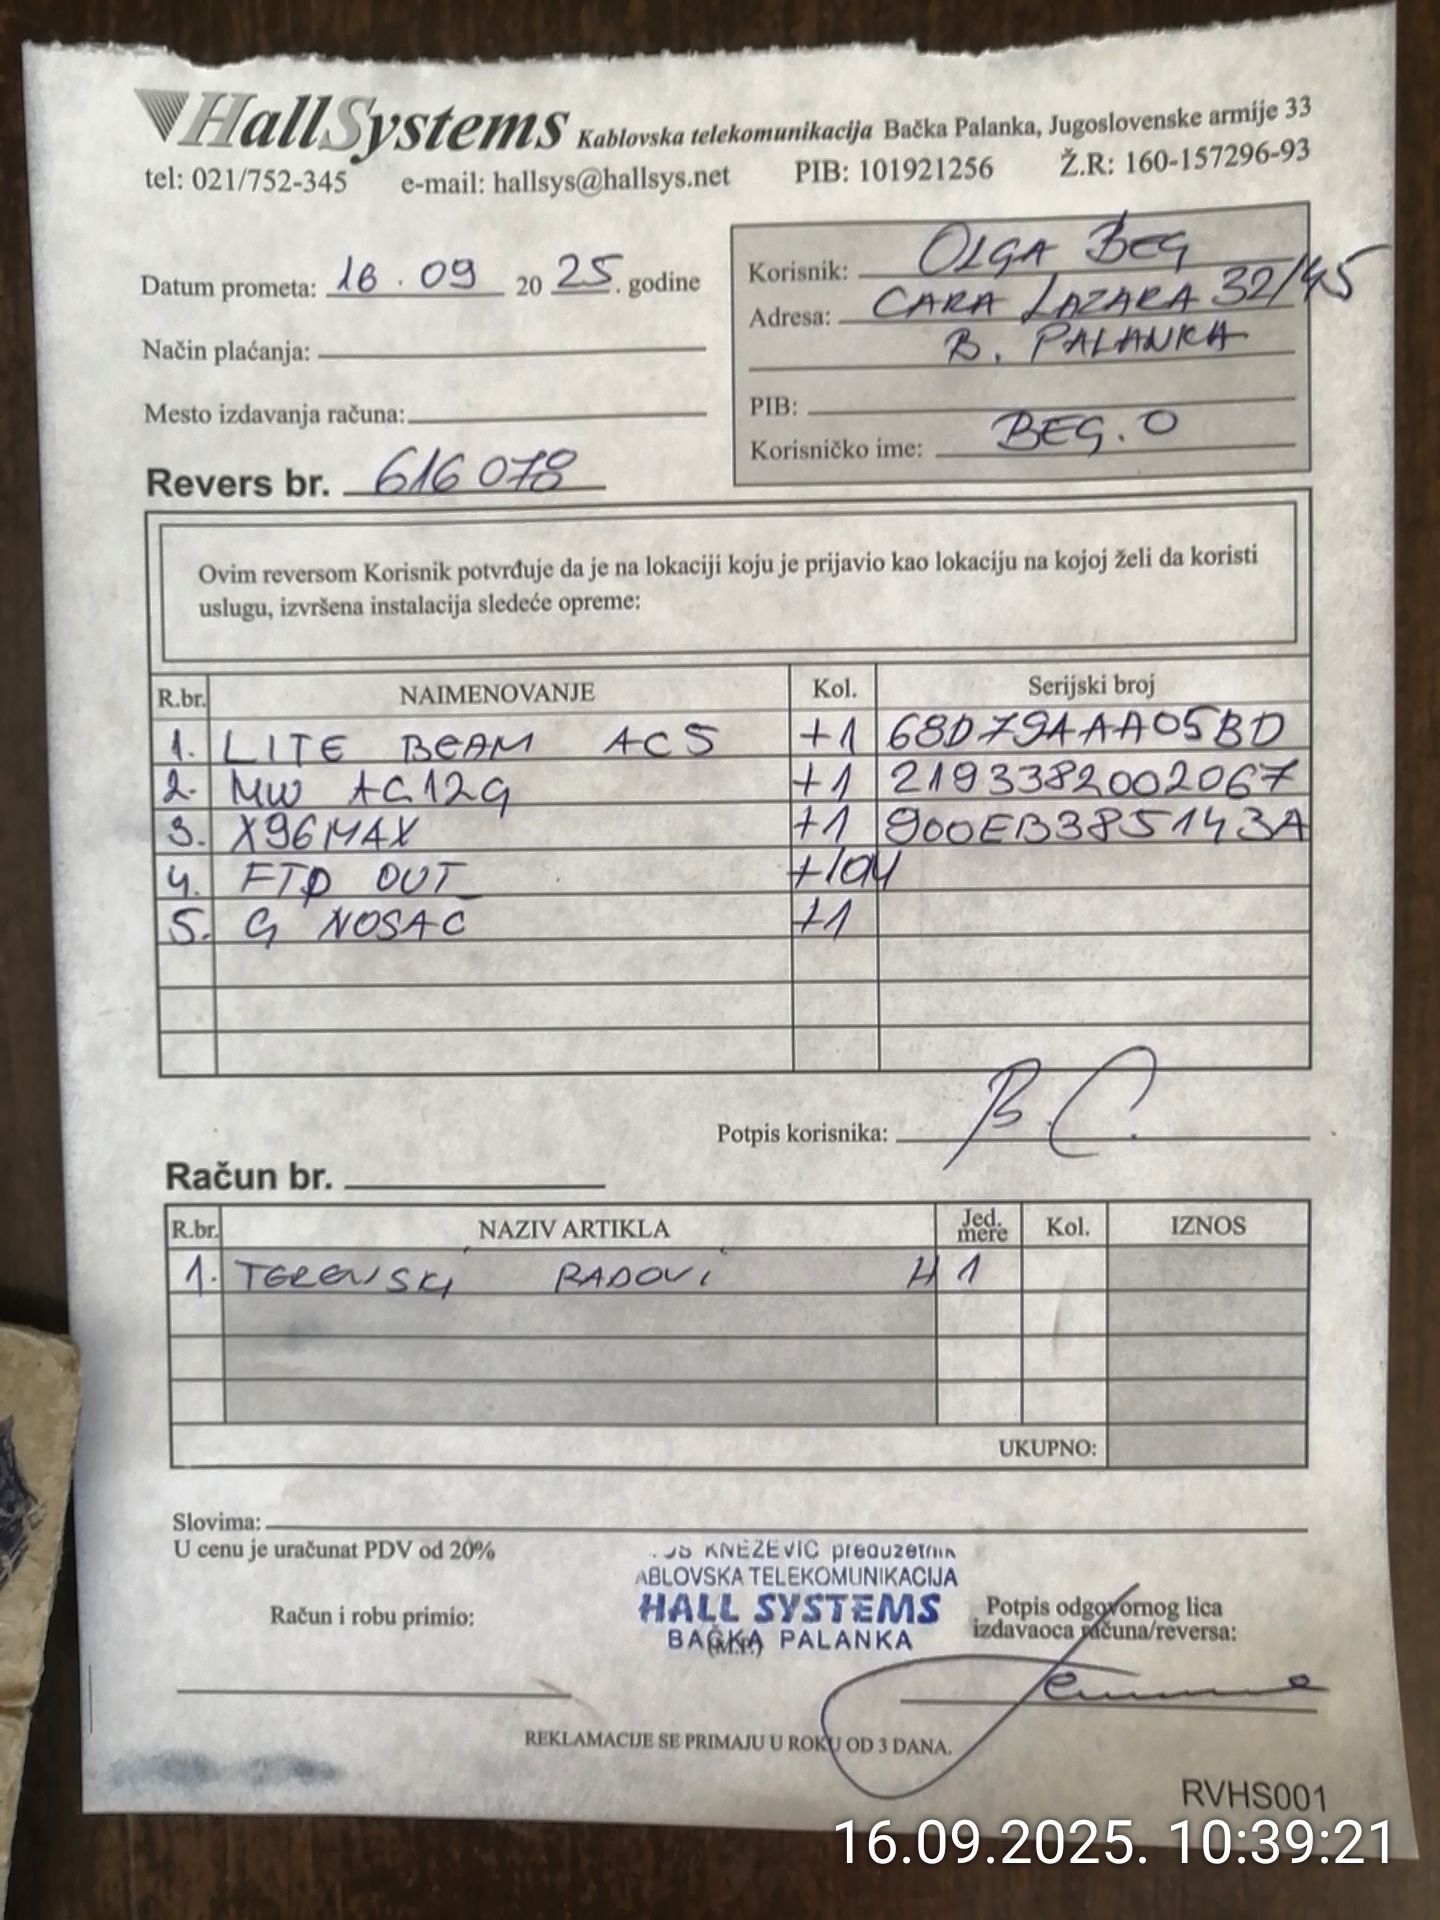 HallSystems Kablovska telekomunikacija Bačka Palanka, Jugoslovenske armije 33
tel: 021/752-345 e-mail: hallsys@hallsys.net PIB: 101921256 Ž.R: 160-157296-93
Datum prometa: 16.09 2025. godine
Način plaćanja:
Mesto izdavanja računa:
Revers br. 616078
Korisnik: OLGA BEG
Adresa: CARA LAZARA 32/45
B. PALANKA
PIB:
Korisničko ime: BEG.O
Ovim reversom Korisnik potvrđuje da je na lokaciji koju je prijavio kao lokaciju na kojoj želi da koristi
uslugu, izvršena instalacija sledeće opreme:
R.br. NAIMENOVANJE Kol. Serijski broj
1. LITE BEAM AC5 +1 68D79AAA05BD
2. MW AC12G +1 2193382002067
3. X96MAX +1 900EB385143A
4. FTP OUT
5. G NOSAC +1
Potpis korisnika: B.C.
Račun br.
R.br. NAZIV ARTIKLA Jed. mere Kol. IZNOS
1. TERENSKI RADOVI H 1
UKUPNO:
Slovima:
U cenu je uračunat PDV od 20%
KNEZEVIC preduzetnik
ABLOVSKA TELEKOMUNIKACIJA
HALL SYSTEMS
BAČKA PALANKA
(M.P.)
Račun i robu primio:
Potpis odgovornog lica
izdavaoca računa/reversa:
REKLAMACIJE SE PRIMAJU U ROKU OD 3 DANA.
RVHS001
16.09.2025. 10:39:21